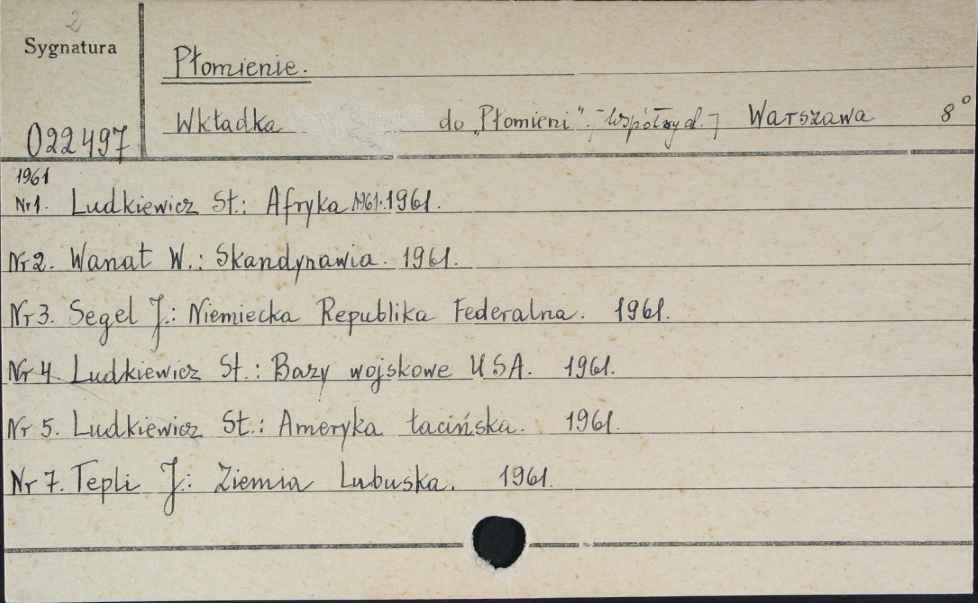 2
Sygnatura
Płomienie.
022497
Wkładka do „Płomieni". - Współwyd. - Warszawa 8°
1961
Nr 1. Ludkiewicz St.: Afryka 1961. 1961.
Nr 2. Wanat W.: Skandynawia. 1961.
Nr 3. Segel J.: Niemiecka Republika Federalna. 1961.
Nr 4. Ludkiewicz St.: Bazy wojskowe USA. 1961.
Nr 5. Ludkiewicz St.: Ameryka łacińska. 1961.
Nr 7. Tepli J.: Ziemia Lubuska. 1961.